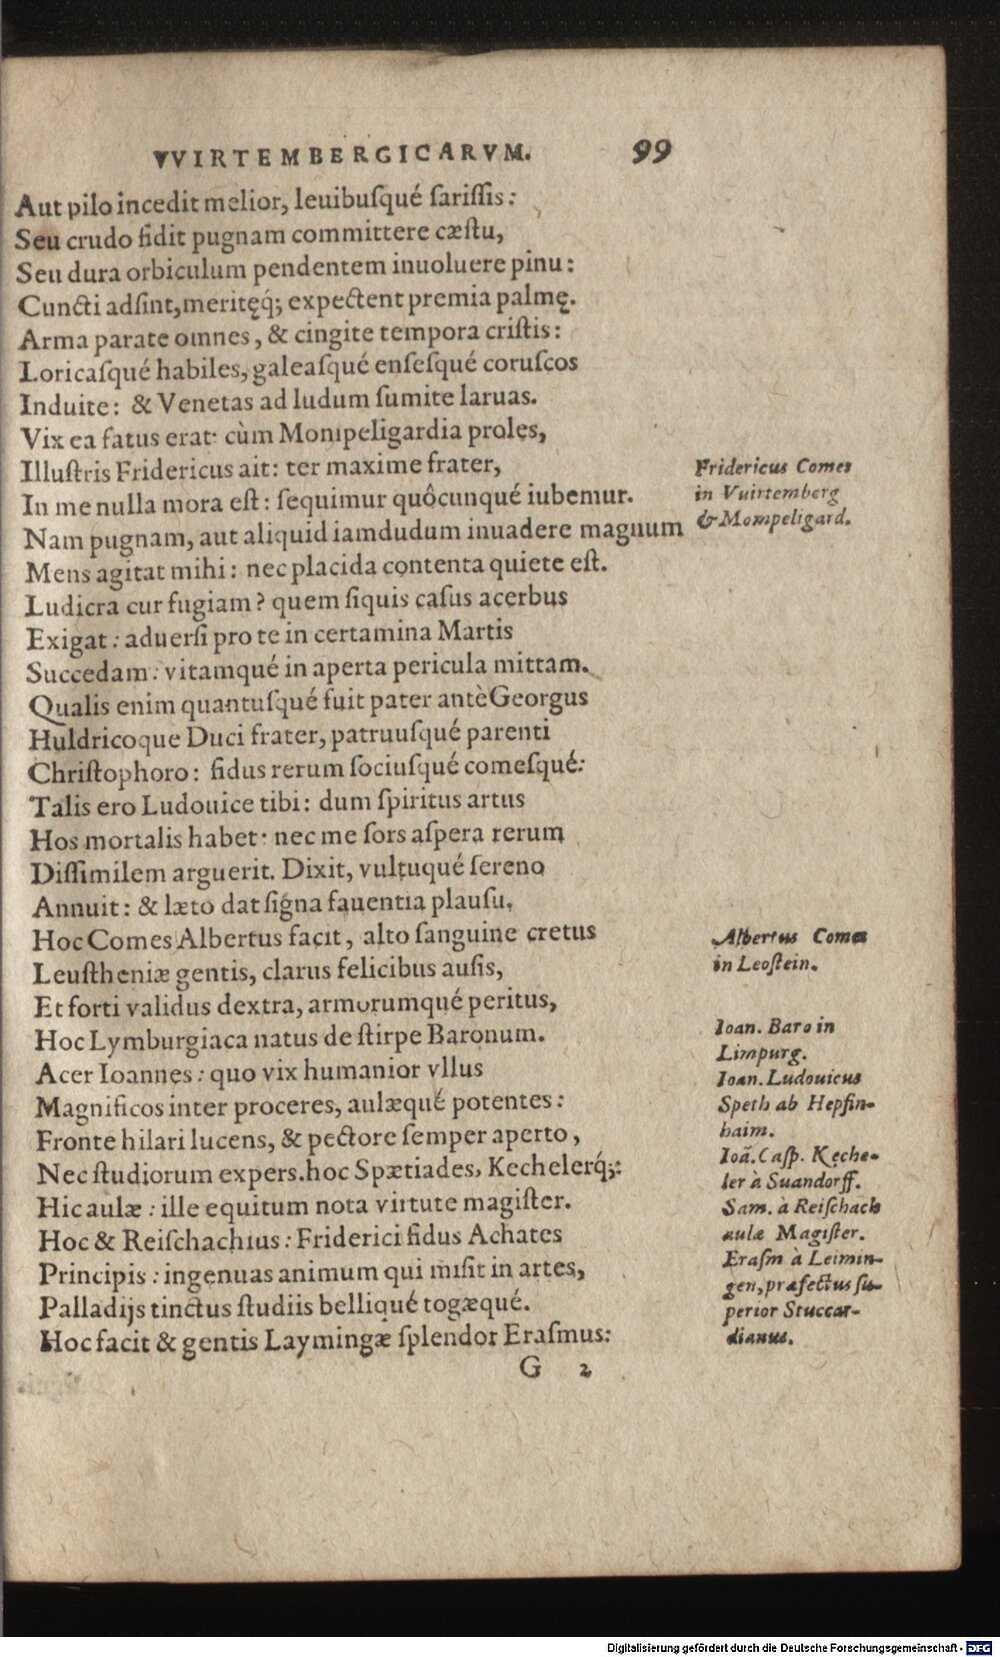 VVIRTEMBERGICARVM. 99
Aut pilo incedit melior, leuibuſqué ſariſſis:
Seu crudo fidit pugnam committere cæſtu,
Seu dura orbiculum pendentem inuoluere pinu:
Cuncti adſint, meritęq́; expectent premia palmę.
Arma parate omnes, & cingite tempora criſtis:
Loricaſqué habiles, galeaſqué enſeſqué coruſcos
Induite: & Venetas ad ludum ſumite laruas.
Vix ea fatus erat: cùm Mompeligardia proles,
Illuſtris Fridericus ait: ter maxime frater,
In me nulla mora eſt: ſequimur quôcunqué iubemur.
Nam pugnam, aut aliquid iamdudum inuadere magnum
Mens agitat mihi: nec placida contenta quiete eſt.
Ludicra cur fugiam? quem ſiquis caſus acerbus
Exigat: aduerſi pro te in certamina Martis
Succedam: vitamqué in aperta pericula mittam.
Qualis enim quantuſqué fuit pater antè Georgus
Huldricoque Duci frater, patruuſqué parenti
Chriſtophoro: fidus rerum ſociuſqué comeſqué:
Talis ero Ludouice tibi: dum ſpiritus artus
Hos mortalis habet: nec me ſors aſpera rerum
Diſſimilem arguerit. Dixit, vultuqué ſereno
Annuit: & læto dat ſigna fauentia plauſu.
Hoc Comes Albertus facit, alto ſanguine cretus
Leuſtheniæ gentis, clarus felicibus auſis,
Et forti validus dextra, armorumqué peritus,
Hoc Lymburgiaca natus de ſtirpe Baronum.
Acer Ioannes: quo vix humanior vllus
Magnificos inter proceres, aulæqué potentes:
Fronte hilari lucens, & pectore ſemper aperto,
Nec ſtudiorum expers. hoc Spætiades, Kechelerq́;:
Hic aulæ: ille equitum nota virtute magiſter.
Hoc & Reiſchachius: Friderici fidus Achates
Principis: ingenuas animum qui miſit in artes,
Palladijs tinctus ſtudiis belliqué togæqué.
Hoc facit & gentis Laymingæ ſplendor Eraſmus:
G 2
Fridericus Comes
in Vuirtemberg
& Mompeligard.
Albertus Comes
in Leoſtein.
Ioan. Baro in
Limpurg.
Ioan. Ludouicus
Speth ab Hepfin-
haim.
Ioā. Caſp. Keche-
ler à Suandorff.
Sam. à Reiſchach
aulæ Magiſter.
Eraſm à Leimin-
gen, præfectus ſu-
perior Stuccar-
dianus.
Digitalisierung gefördert durch die Deutsche Forschungsgemeinschaft - DFG